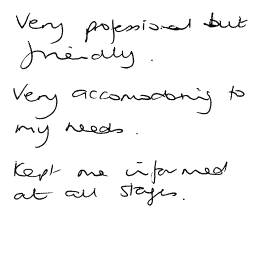 Very professional but
friendly.
Very accomodating to
my needs.
Kept me informed
at all stages.